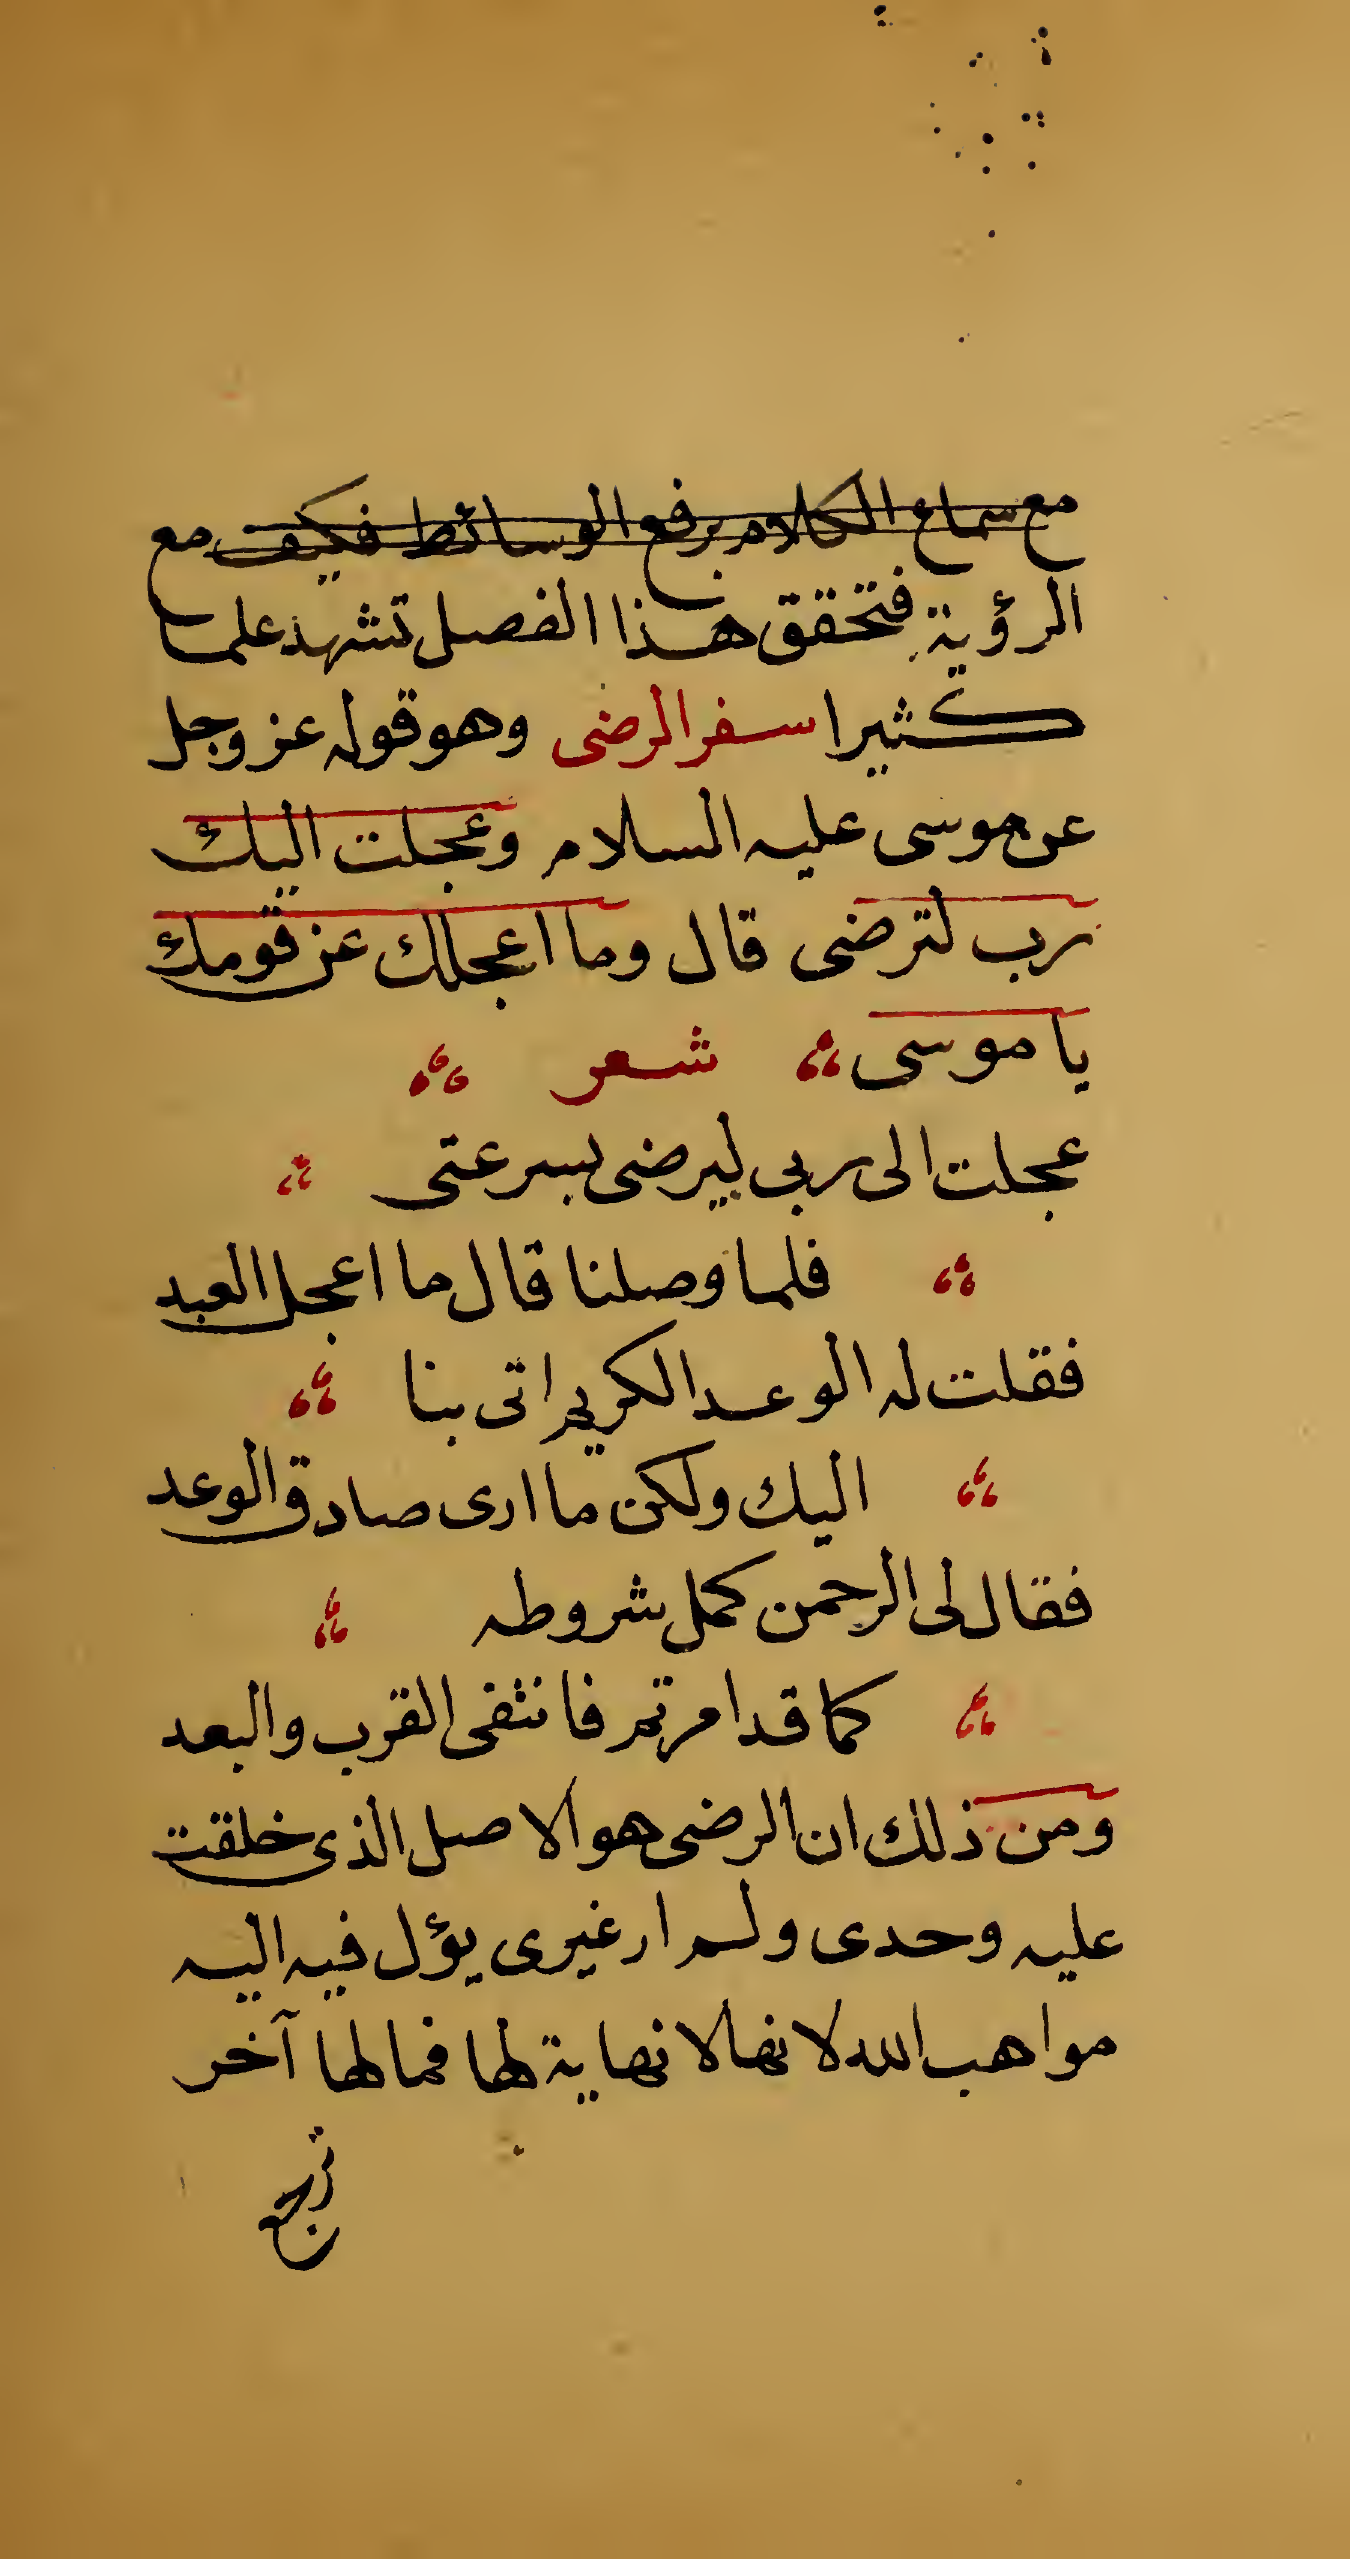 مع سماع الكلام برفع الوسائط فكيف مع
الرؤية فتحقق هذا الفصل تشهد علما
كثيرا سفر الرضى وهو قوله عز وجل
عن موسى عليه السلام وعجلت اليك
رب لترضى قال وما اعجلك عن قومك
يا موسى شعر
عجلت الى ربى ليرضى بسرعتى
فلما وصلنا قال ما اعجل العبد
فقلت له الوعد الكريم اتى بنا
اليك ولكن ما ارى صادق الوعد
فقال لى الرحمن كمل شروطه
كما قد امرتم فانتفى القرب والبعد
ومن ذلك ان الرضى هو الاصل الذى خلقت
عليه وحدى ولم ار غيرى يؤل فيه اليه
مواهب الله لا نها لا نهاية لها فما لها آخر
ترجع